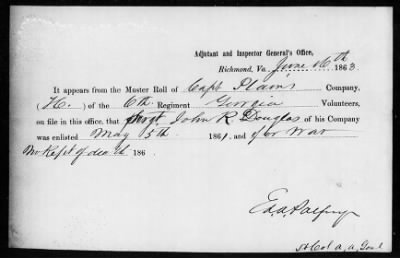 Adjutant and Inspector General's Office,
Richmond, Va. June 16th 1863.
It appears from the Master Roll of Capt Plain's Company,
(K.) of the 6th Regiment Georgia Volunteers,
on file in this office, that Sergt. John R Douglas of his Company
was enlisted May 5th 1861, and for War
No Rept of death 186
Lt Col a, a, Genl